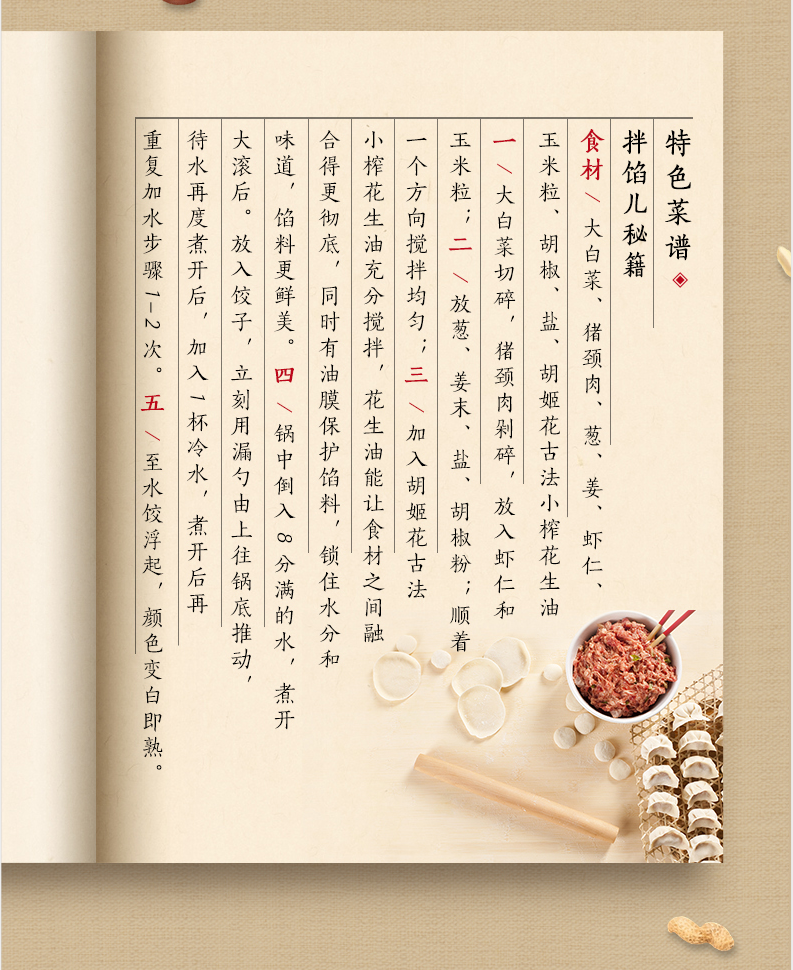 特色菜谱
拌馅儿秘籍
食材/大白菜、猪颈肉、葱、姜、虾仁、
玉米粒、胡椒、盐、胡姬花古法小榨花生油
一/大白菜切碎，猪颈肉剁碎，放入虾仁和
玉米粒；二/放葱、姜末、盐、胡椒粉；顺着
一个方向搅拌均匀；三/加入胡姬花古法
小榨花生油充分搅拌，花生油能让食材之间融
合得更彻底，同时有油膜保护馅料，锁住水分和
味道，馅料更鲜美。四/锅中倒入8分满的水，煮开
大滚后。放入饺子，立刻用漏勺由上往锅底推动，
待水再度煮开后，加入1杯冷水，煮开后再
重复加水步骤1-2次。五/至水饺浮起，颜色变白即熟。